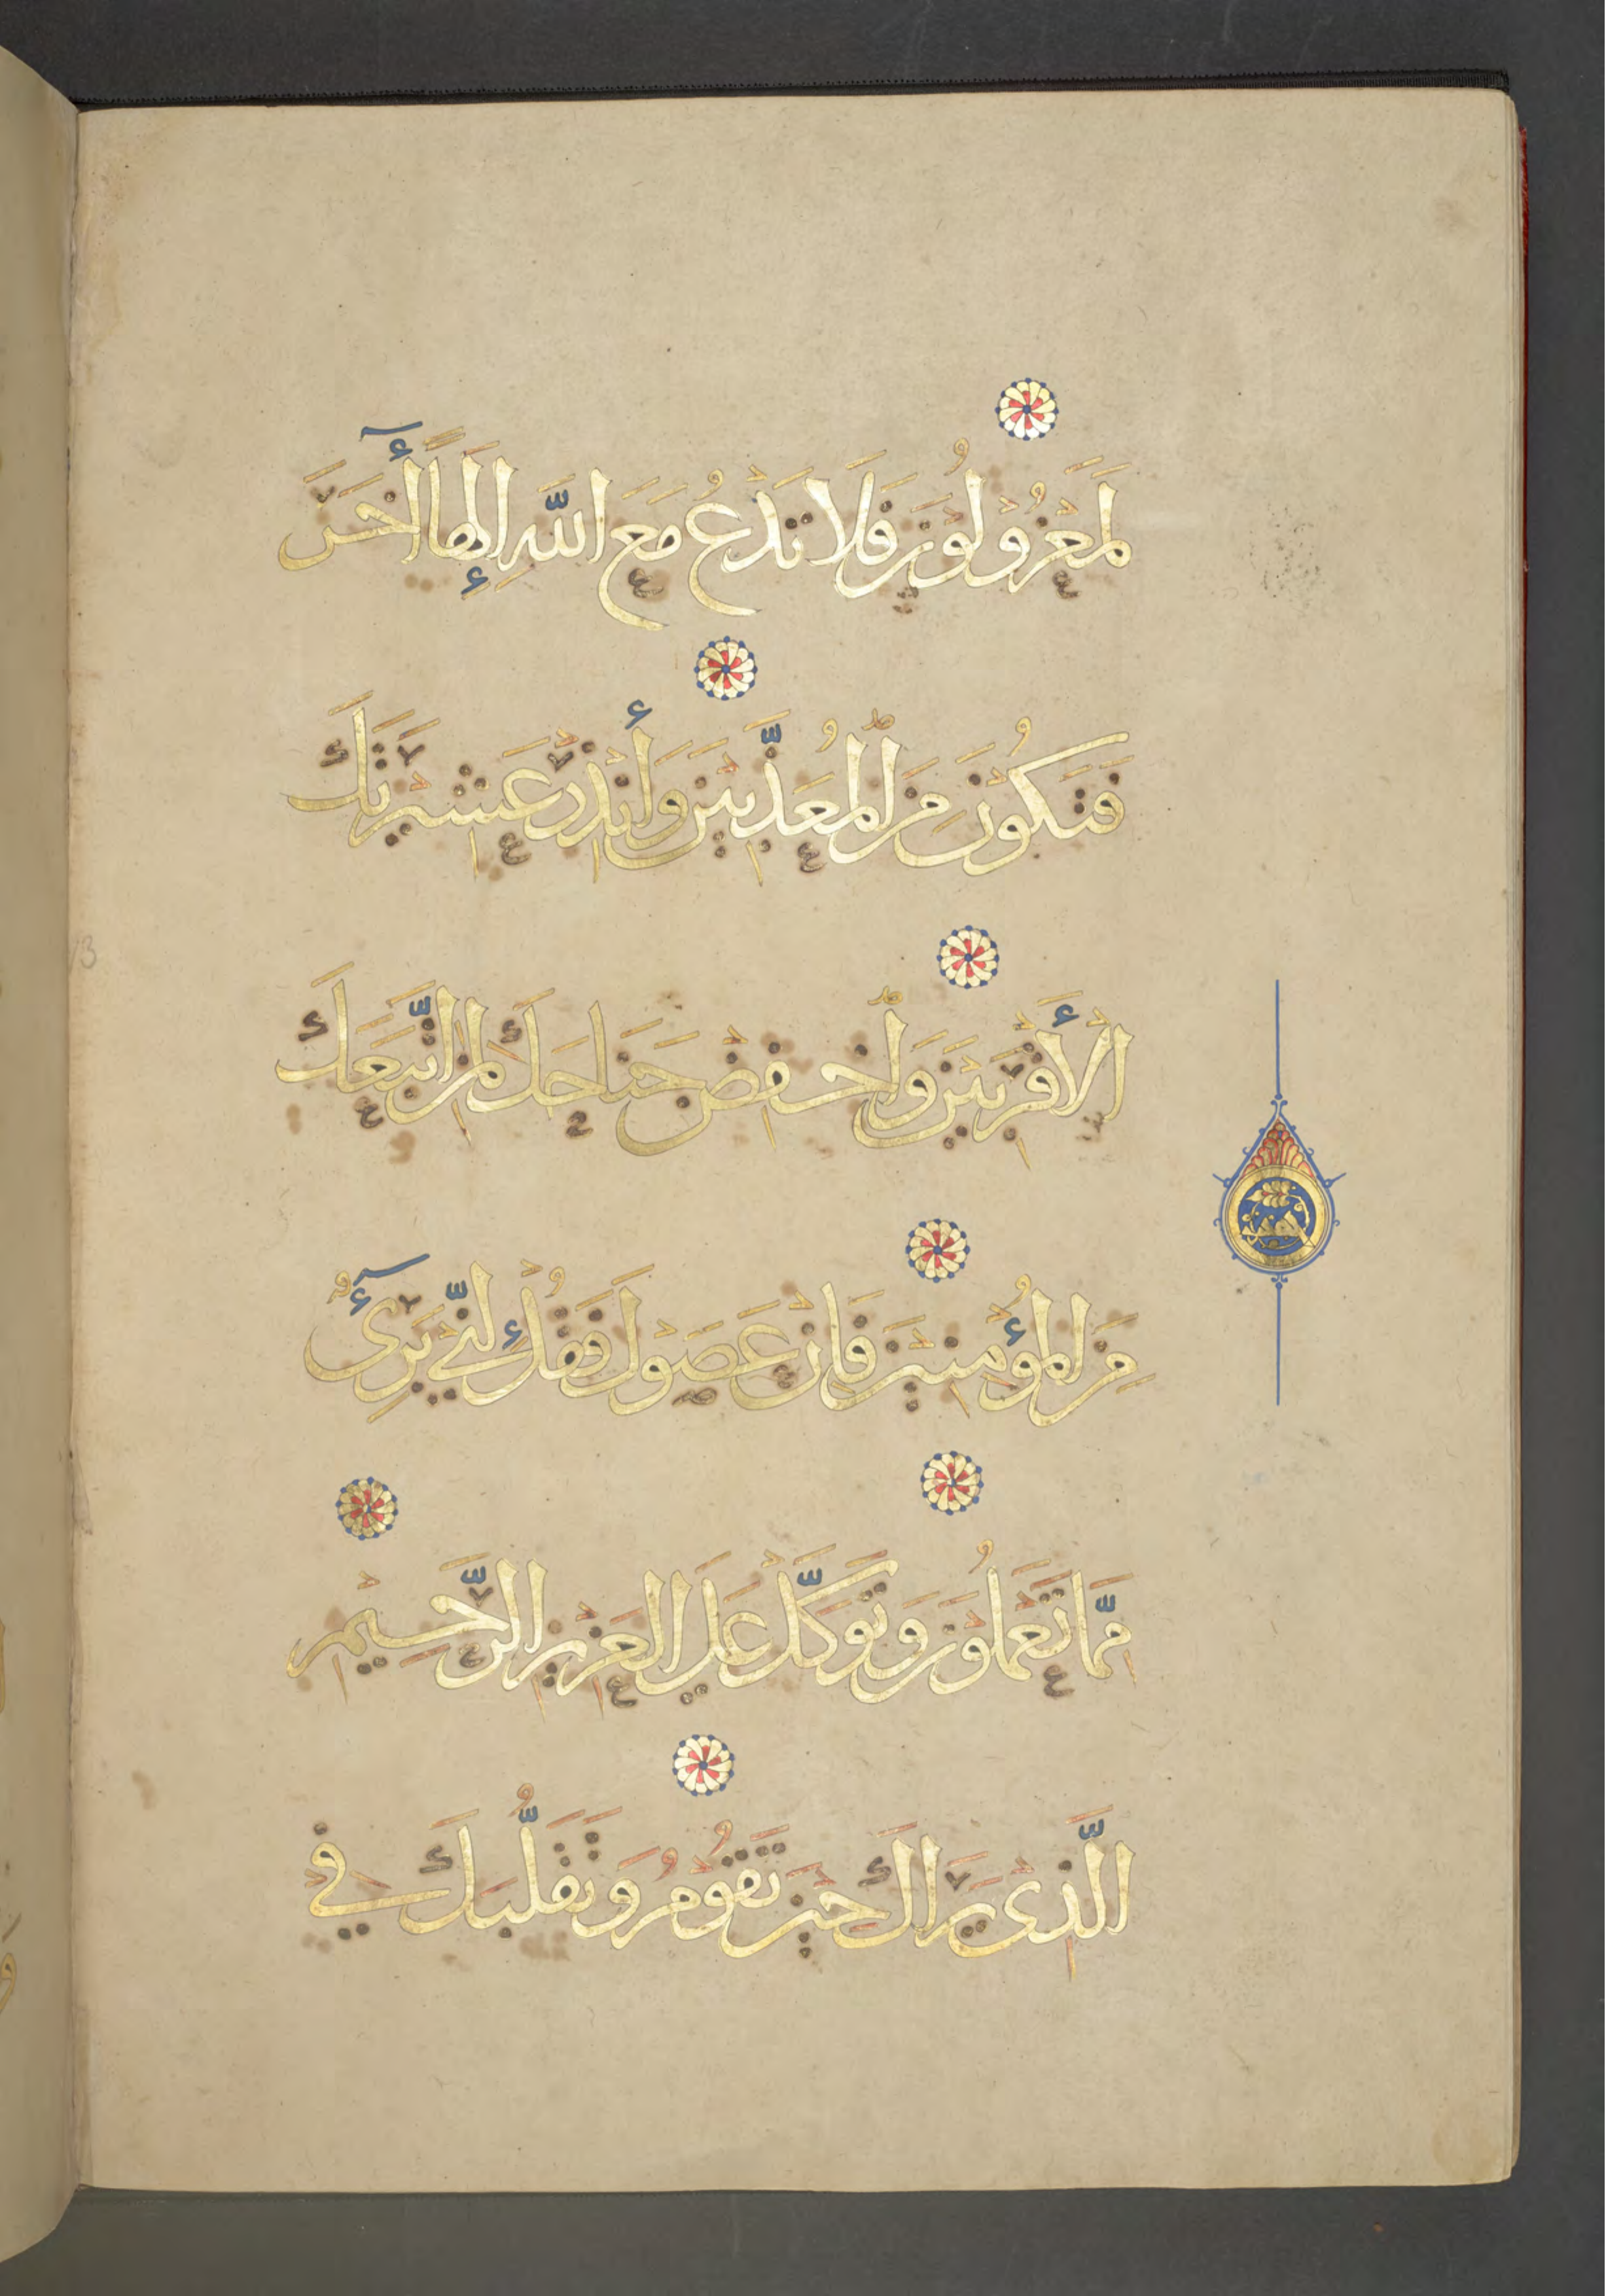 لَمَعْزُولُونَ فَلَا تَدْعُ مَعَ اللَّهِ إِلَهًا أَخَرَ
فَتَكُونَ مِنَ الْمُعَذَّبِينَ وَأَنْذِرْ عَشِيرَتَكَ
الْأَقْرَبِينَ وَاخْفِضْ جَنَاحَكَ لِمَنِ اتَّبَعَكَ
مِنَ الْمُؤْمِنِينَ فَإِنْ عَصَوْكَ فَقُلْ إِنِّي بَرِيءٌ
مِمَّا تَعْمَلُونَ وَتَوَكَّلْ عَلَى الْعَزِيزِ الرَّحِيمِ
الَّذِي يَرَاكَ حِينَ تَقُومُ وَتَقَلُّبَكَ فِي